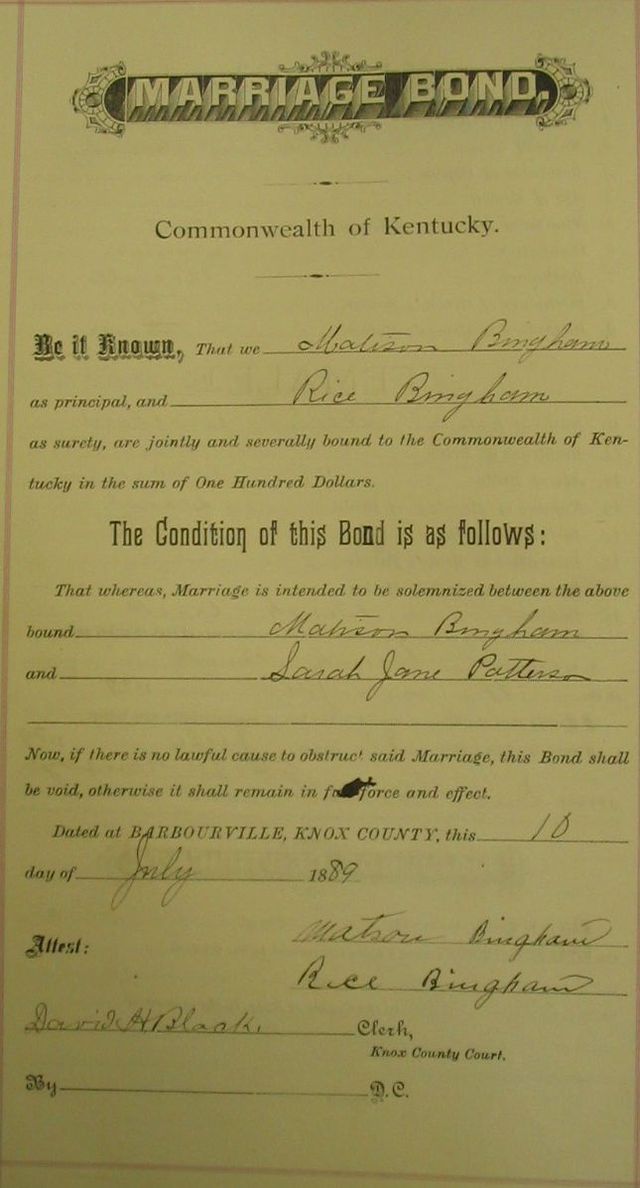 MARRIAGE BOND.
Commonwealth of Kentucky.
Be it Known, That we Matison Bingham
as principal, and Rice Bingham
as surety, are jointly and severally bound to the Commonwealth of Ken-
tucky in the sum of One Hundred Dollars.
The Condition of this Bond is as follows:
That whereas, Marriage is intended to be solemnized between the above
bound Matison Bingham
and Sarah Jane Patterson
Now, if there is no lawful cause to obstruct said Marriage, this Bond shall
be void, otherwise it shall remain in force and effect.
Dated at BARBOURVILLE, KNOX COUNTY, this 10
day of July 1889
Attest: Matson Bingham
Rice Bingham
David H Black. Clerk,
Knox County Court.
By D.C.